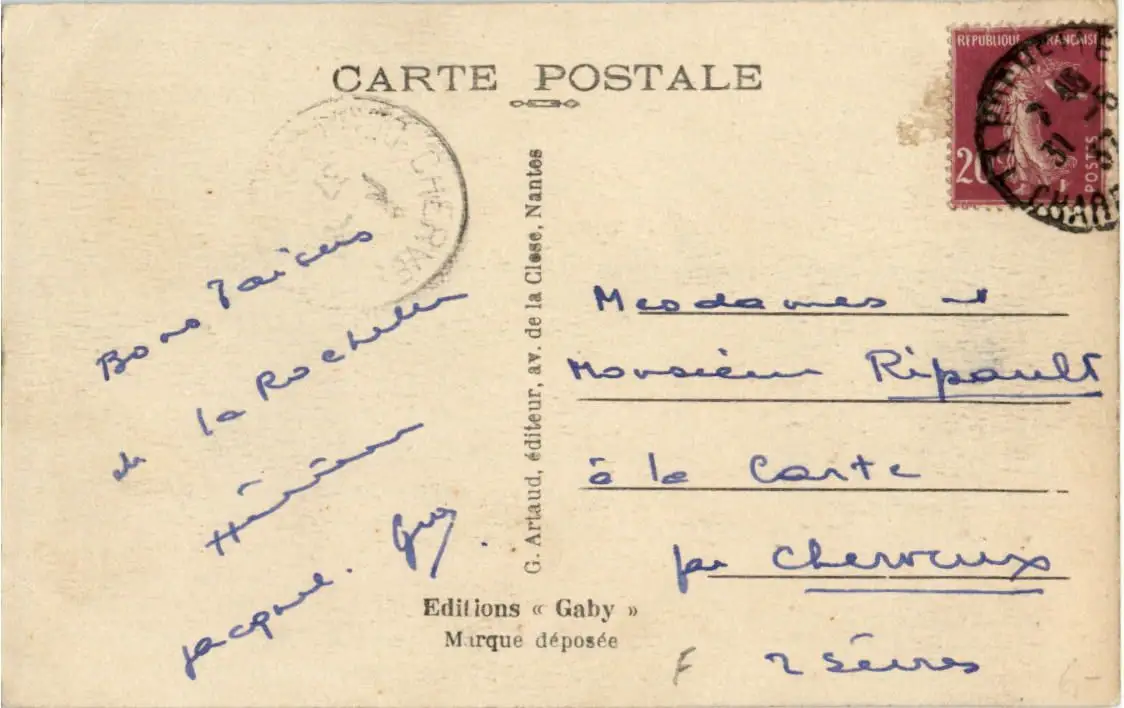 CARTE POSTALE
RÉPUBLIQUE FRANÇAISE
20
POSTES
LA ROCHELLE
31
CHAR
CHERVE
37
Bons baisers
de la Rochelle
Jacques. Guy.
G. Artaud, éditeur, av. de la Close, Nantes
Editions « Gaby »
Marque déposée
Mesdames et
Monsieur Ripault
à la Carte
par Cherveux
2 Sèvres
F